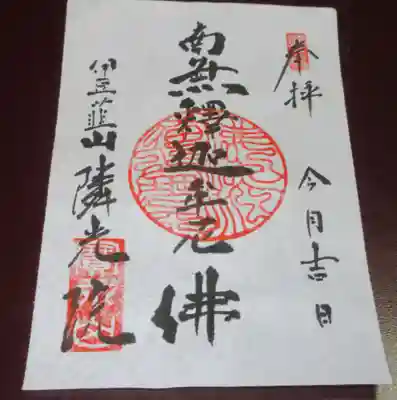 奉拝 今月吉日
南無釋迦牟尼佛
伊豆韮山 隣光院